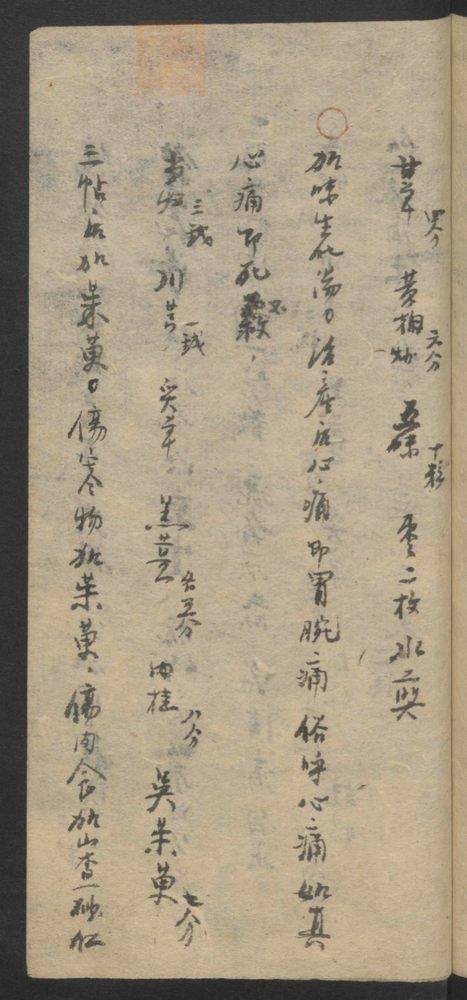 甘草四分 黄柏炒六分 五味十粒 枣二枚 水二
加味生化湯。治産后心痛即胃脘痛俗呼心痛如真
心痛即死不
当归三钱 川芎一钱 炙草 黑薑各五分 肉桂八分 吴茱萸七分
三帖后加茱萸。傷寒物加茱萸。傷肉食加山查砂仁